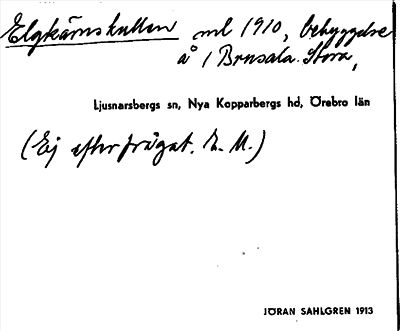 Elgkärnskullen ml 1910, bebyggelse
å 1 Brusala. Stora,
Ljusnarsbergs sn, Nya Kopparbergs hd, Örebro län
(Ej efterfrågat. E. M.)
JÖRAN SAHLGREN 1913